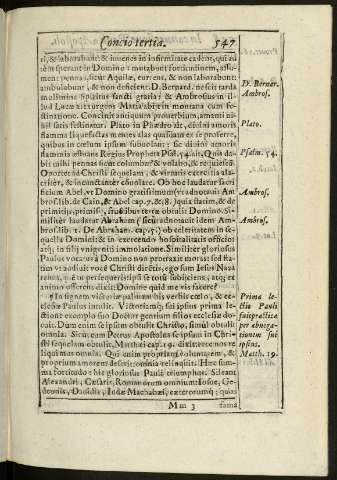 Concio tertia. 547
ri, & laborabunt: & iuuenes in infirmitate cadent, qui au-
tem sperant in Domino: mutabunt fortitudinem, assu-
ment pennas, sicut Aquilæ, current, & non laborabunt:
ambulabunt, & non deficient. D. Bernard. nescit tarda
molimina Spiritus sancti gratia: & Ambrosius in il-
lud Lucæ exurgens Maria abijt in montana cum fe-
stinatione. Concinit antiquum prouerbium, amenti ni-
hil satis festinatur. Plato in Phædro ait, diuini amoris
flamma liquefactas mentes alas quasdam ex se proferre,
quibus in cœlum ipsum subuolant: sic diuini amoris
flammis æstuans Regius Propheta Psal. 54. ait, Quis da-
bit mihi pennas sicut columbæ & volabo, & requiescã.
Oportet ad Christi sequelam, & virtutis exercitia ala-
criter, & incunctanter euolare. Ob hoc laudatur sacri
ficium Abel, vt Domino gratissimum (vt adnotauit Am
bros. lib. de Cain, & Abel cap. 7. & 8.) quia statim, & de
primitijs, primisq́; frugibus terræ obtulit Domino. Si-
militer laudatur Abraham (sicut adnotauit idem Am-
bros. lib. 1. De Abraham. cap. 5.) ob celeritatem in se-
quella Domini: & in exercendo hospitalitatis officio:
atq́; in filij vnigeniti immolatione. Similiter gloriosus
Paulus vocatus à Domino non protraxit moras: sed sta-
tim vt audiuit vocē Christi dicētis, ego sum Iesus Naza
renus, quē tu persequeris: ipsi se totū subijciens, atq́; ex
animo offerens dixit: Domine quid me vis facere?
In signem victoriæ palmam bis verbis cœlo, & ec-
clesiæ Paulus intulit. Victoriamq́; sui ipsius prima le-
ctione exemplo suo Doctor gentium filios ecclesiæ do-
cuit. Dum enim se ipsum obtulit Christo, simul obtulit
omnia. Sicut enim Petrus Apostolus se ipsum in Chri-
sti sequelam obtulit, Matthæi cap. 19. dixit: ecce nos re
liquimus omnia. Qui enim propriam volũtatem, &
proprium amorem deserit, omnia relinquit. Hæc sum-
ma fortitudo: hic gloriosus Pauli triumphus. Sileant
Alexandri, Cæsaris, Romanorum omnium: Iosue, Ge-
deonis, Dauidis, Iudæ Machabæi, exterorumq́; quia
Mm 3 fama
D. Bernar.
Ambros.
Plato.
Psalm. 54.
Ambros.
Ambros.
Prima le-
ctio Pauli
fuit præstita
per abnega-
tionem sui
ipsius.
Matth. 19.